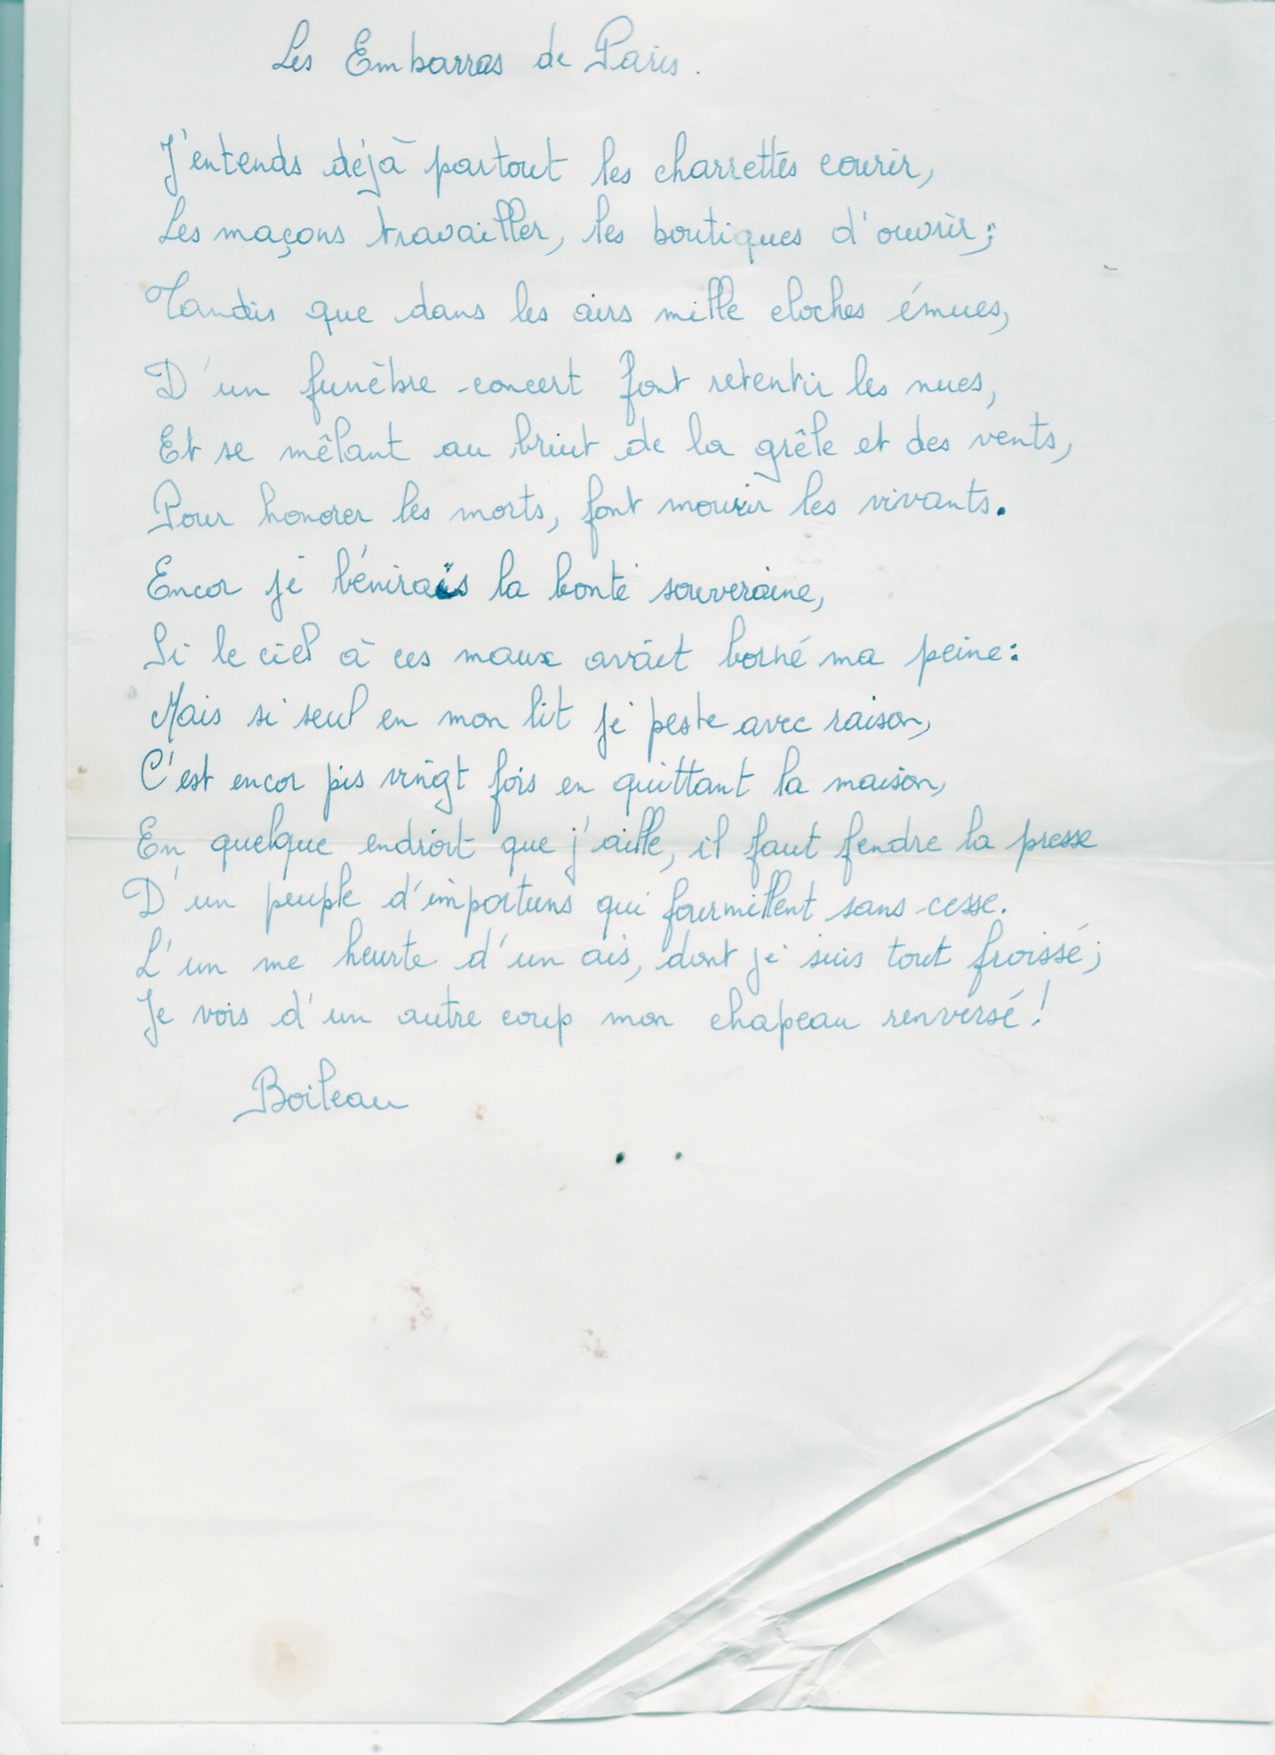 Les Embarras de Paris.
J'entends déjà partout les charrettes courir,
Les maçons travailler, les boutiques d'ouvrir;
Tandis que dans les airs mille cloches émues,
D'un funèbre concert font retentir les nues,
Et se mêlant au bruit de la grêle et des vents,
Pour honorer les morts, font mourir les vivants.
Encor je bénirais la bonté souveraine,
Si le ciel à ces maux avait borné ma peine:
Mais si seul en mon lit je peste avec raison,
C'est encor pis vingt fois en quittant la maison,
En quelque endroit que j'aille, il faut fendre la presse
D'un peuple d'importuns qui fourmillent sans cesse.
L'un me heurte d'un ais, dont je suis tout froissé;
Je vois d'un autre coup mon chapeau renversé!
Boileau